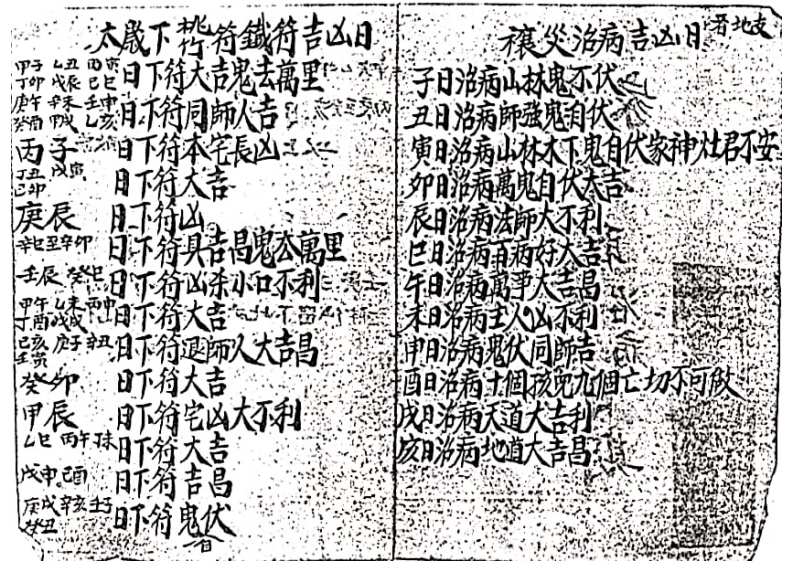 太歲下桃竹符鐵符吉凶日
甲子乙丑丙寅丁卯戊辰己巳日下符大吉鬼去萬里
庚午辛未壬申癸酉甲戌乙亥日下符同師人吉
丙子日下符本宅長凶
丁丑戊寅己卯日下符大吉
庚辰日下符凶
辛巳至辛卯日下符具吉昌鬼去萬里
壬辰癸巳日下符凶杀小口不利
甲午乙未丙申丁酉戊戌日下符大吉
己亥庚子辛丑壬寅日下符退師人大吉昌
癸卯日下符大吉
甲辰日下符宅凶大不利
乙巳丙午日下符大吉
戊申己酉日下符吉昌
庚戌辛亥壬子癸丑日下符鬼伏
禳災治病吉凶日看地支
子日治病山林鬼不伏
丑日治病師強鬼自伏
寅日治病山林木下鬼自伏家神灶君不安
卯日治病萬鬼自伏大吉
辰日治病法師大不利
巳日治病百病好大吉
午日治病萬事大吉昌
未日治病主人凶不利
申日治病鬼伏同師吉
酉日治病十個孩兒九個亡切不可啟
戌日治病天道大吉利
亥日治病地道大吉昌